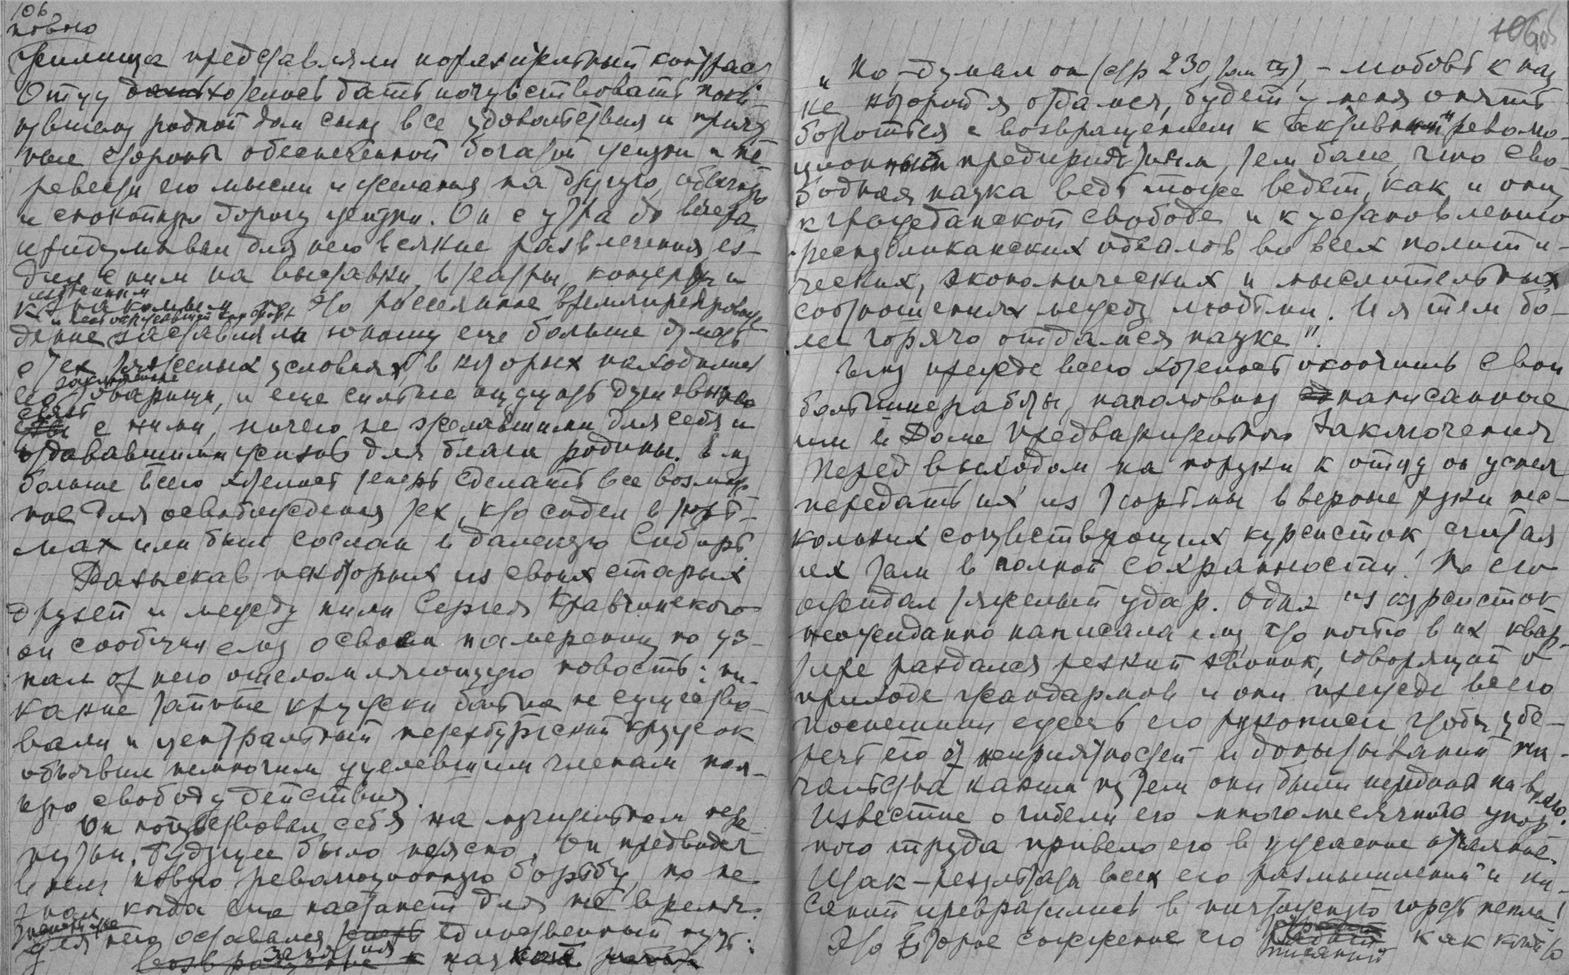 106
нового
жилища представляли поразительный контраст
Отцу хотелось дать почувствовать поки-
нувшему родной дом сыну все удовольствия и прият-
ные стороны обеспеченной богатой жизни и пе-
ревести его мысли и желания на другую, обычную
и спокойную дорогу жизни. Он с утра до вечера
придумывал для него всякие развлечения, ез-
дил с ним на выставки, в театры, концерты и
к знакомым
Но рассеянное времяпрепровож-
дение заставляло юношу еще больше думать
о тех тяжелых условиях в которых находились
его заключенные товарищи, и еще сильнее ощущать душевную
связь с ними, ничего не желавшими для себя и
отдававшими жизнь для блага родины. Ему
больше всего хотелось теперь сделать все возмож-
ное для освобождения тех, кто сидел в тюрь-
мах или был сослан в далекую Сибирь.
Разыскав некоторых из своих старых
друзей и между ними Сергея Кравчинского
он сообщил ему о своем намерении но уз-
нал от него ошеломляющую новость: ни-
какие тайные кружки больше не существо-
вали и центральный петербургский кружок
объявил немногим уцелевшим членам пол-
ную свободу действия.
Он почувствовал себя на мучительном пере-
путьи. Будущее было неясно. Он предвидел
в нем новую революционную борьбу, но не
знал, когда она настанет для нее время.
Для него оставался единственный путь:
"Но – думал он (стр 230, том III), – любовь к нау-
ке которой я отдался, будет у меня опять
бороться с возвращением к активным революц-
ционным предприятиям, тем более, что сво-
бодная наука ведь тоже ведет, как и они,
к гражданской свободе и к установлению
республиканских идеалов во всех полити-
ческих, экономических и мыслительных
соотношениях между людьми. И я тем бо-
лее горячо отдался науке".
Ему прежде всего хотелось окончить свои
большие работы, наполовину написанные
им в Доме предварительного заключения
Перед выходом на поруки к отцу он успел
передать их из тюрьмы в верные руки не-
скольких сочувствующих курсисток, считая
их там в полной сохранности. Но его
ожидал тяжелый удар. Одна из курсисток
неожиданно написала ему, что ночью в их квар-
тире раздался резкий звонок, говорящий о
приходе жандармов и они прежде всего
поспешили сжечь его рукописи чтобы убе-
речь его от неприятностей и допытываний на-
чальства каким путем они были переданы на волю.
Известие о гибели его многомесячного упор-
ного труда привело его в ужасное отчаяние.
Итак – результаты всех его размышлений и пи-
саний превратились в ничтожную горсть пепла!
Это второе сожжение его писаний как